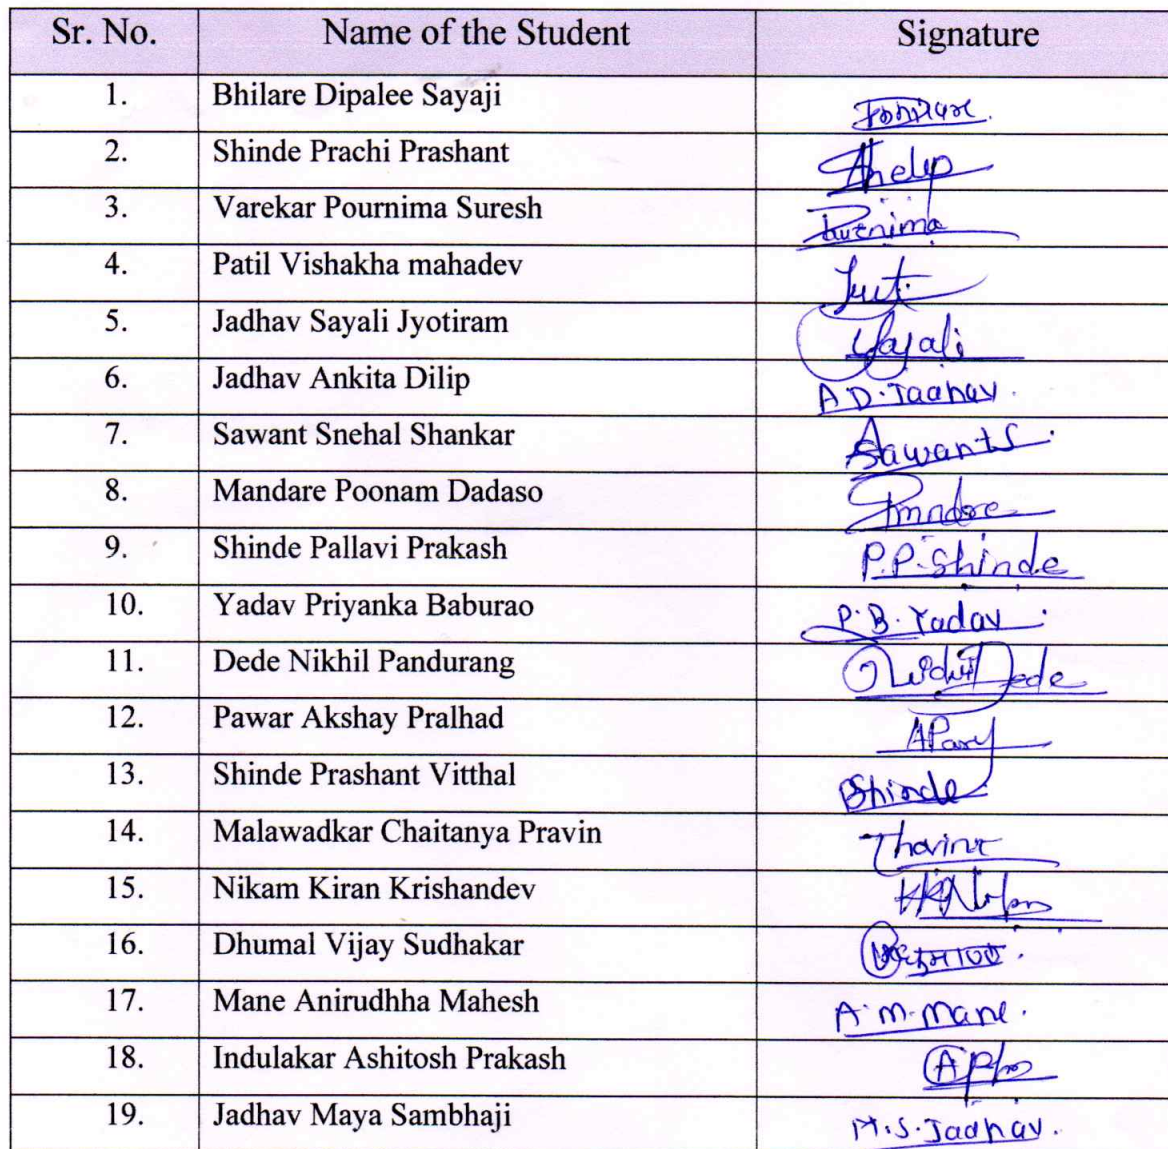 Sr. No. Name of the Student Signature
1. Bhilare Dipalee Sayaji
2. Shinde Prachi Prashant
3. Varekar Pournima Suresh Purnima
4. Patil Vishakha mahadev
5. Jadhav Sayali Jyotiram Sayali
6. Jadhav Ankita Dilip A.D.Jadhav.
7. Sawant Snehal Shankar SawantS.
8. Mandare Poonam Dadaso
9. Shinde Pallavi Prakash P.P.Shinde
10. Yadav Priyanka Baburao P.B.Yadav.
11. Dede Nikhil Pandurang Dede
12. Pawar Akshay Pralhad
13. Shinde Prashant Vitthal PShinde.
14. Malawadkar Chaitanya Pravin
15. Nikam Kiran Krishandev
16. Dhumal Vijay Sudhakar
17. Mane Anirudhha Mahesh A.M.Mane.
18. Indulakar Ashitosh Prakash
19. Jadhav Maya Sambhaji M.S.Jadhav.